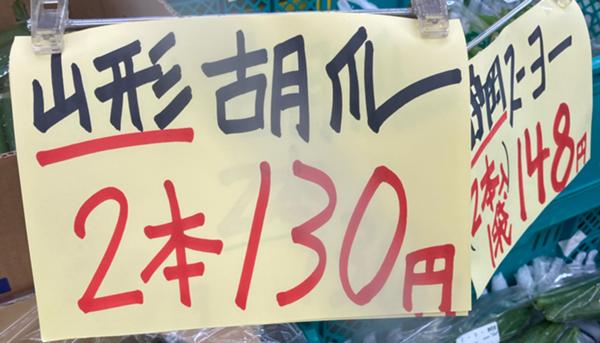 山形胡瓜
2本130円
岡ズーヨー
2本入
148円